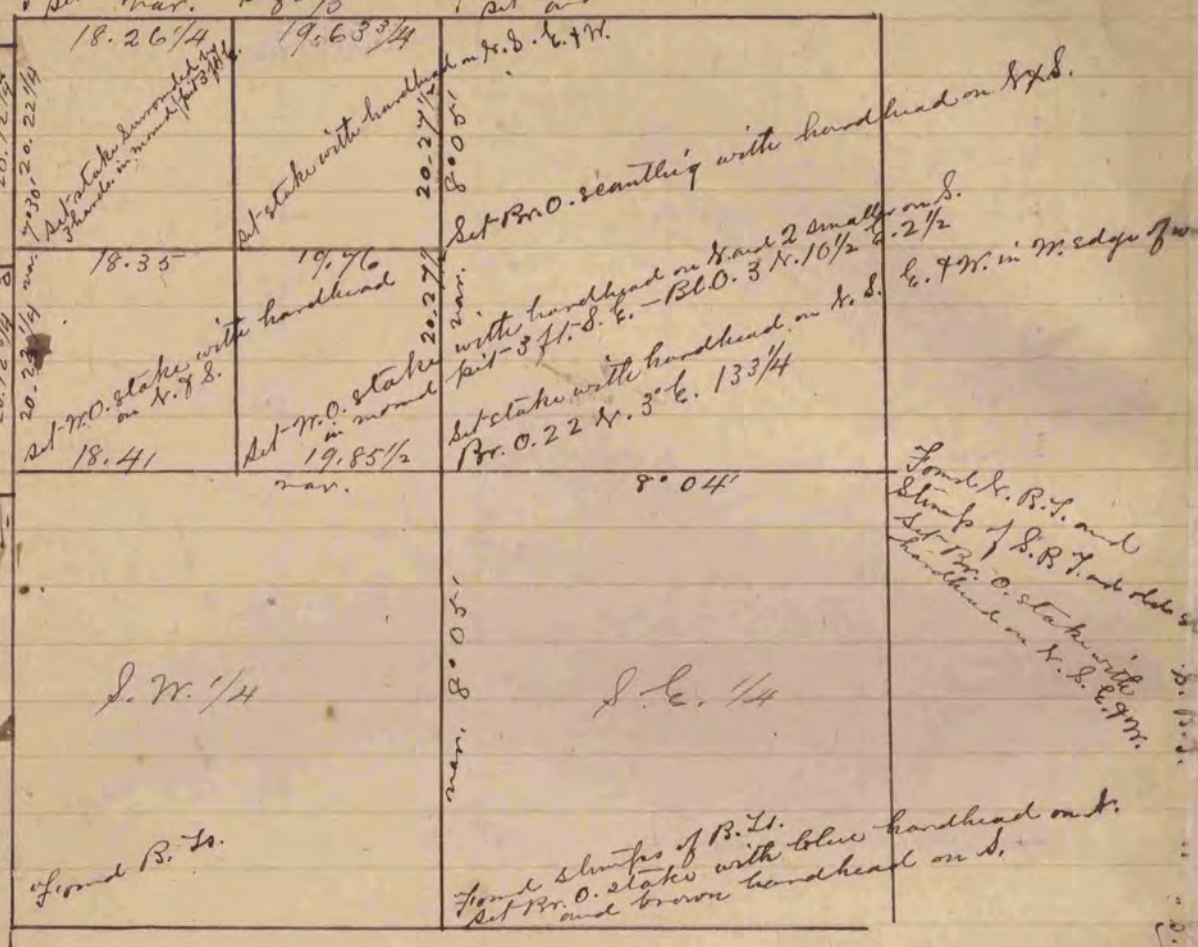 var.
Set
18.26 1/4
19.63 3/4
20.22 1/4
7°30'
Set stake Surrounded by
3 hardheads in mound pit 3 ft E.
Set stake with hardhead on N. S. E. & W.
20.27 1/2
8°05'
Set Br. O. scantling with hardhead on N & S.
18.35
19.76
var.
20.23 1/4
20.12 1/4
Set W.O. stake with hardhead
on N. & S.
18.41
Set W.O. stake with hardhead on N. and 2 smaller on S.
in mound pit 3 ft. S. E. – Bl. O. 3 N. 10 1/2 E. 2 1/2
19.85 1/2
20.27 1/2
var.
Set stake with hardhead on N. S. E. & W. in W. edge of
Br. O. 22 N. 3° E. 133 1/4
var.
8° 04'
Found N. B.T. and
Stump of S. B T. and old
Set Br. O. stake with
hardhead on N. S. E. & W.
var. 8°05'
S. W. 1/4
S. E. 1/4
Found B. Ts.
Found stumps of B. Ts.
Set Br. O. stake with blue hardhead on N.
and brown hardhead on S.